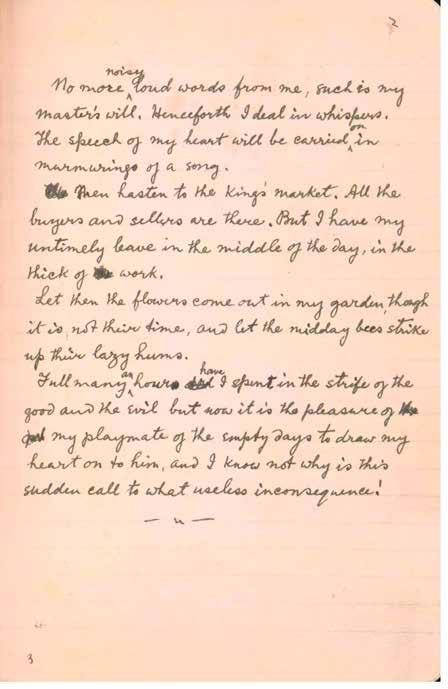 7
noisy
No more loud words from me, such is my
master's will. Henceforth I deal in whispers.
on
The speech of my heart will be carried in
murmurings of a song.
Men hasten to the King's market. All the
buyers and sellers are there. But I have my
untimely leave in the middle of the day, in the
thick of work.
Let then the flowers come out in my garden, though
it is not their time, and let the midday bees strike
up their lazy hums.
an have
Full many hours I spent in the strife of the
good and the evil but now it is the pleasure of
my playmate of the empty days to draw my
heart on to him, and I know not why is this
sudden call to what useless inconsequence!
3